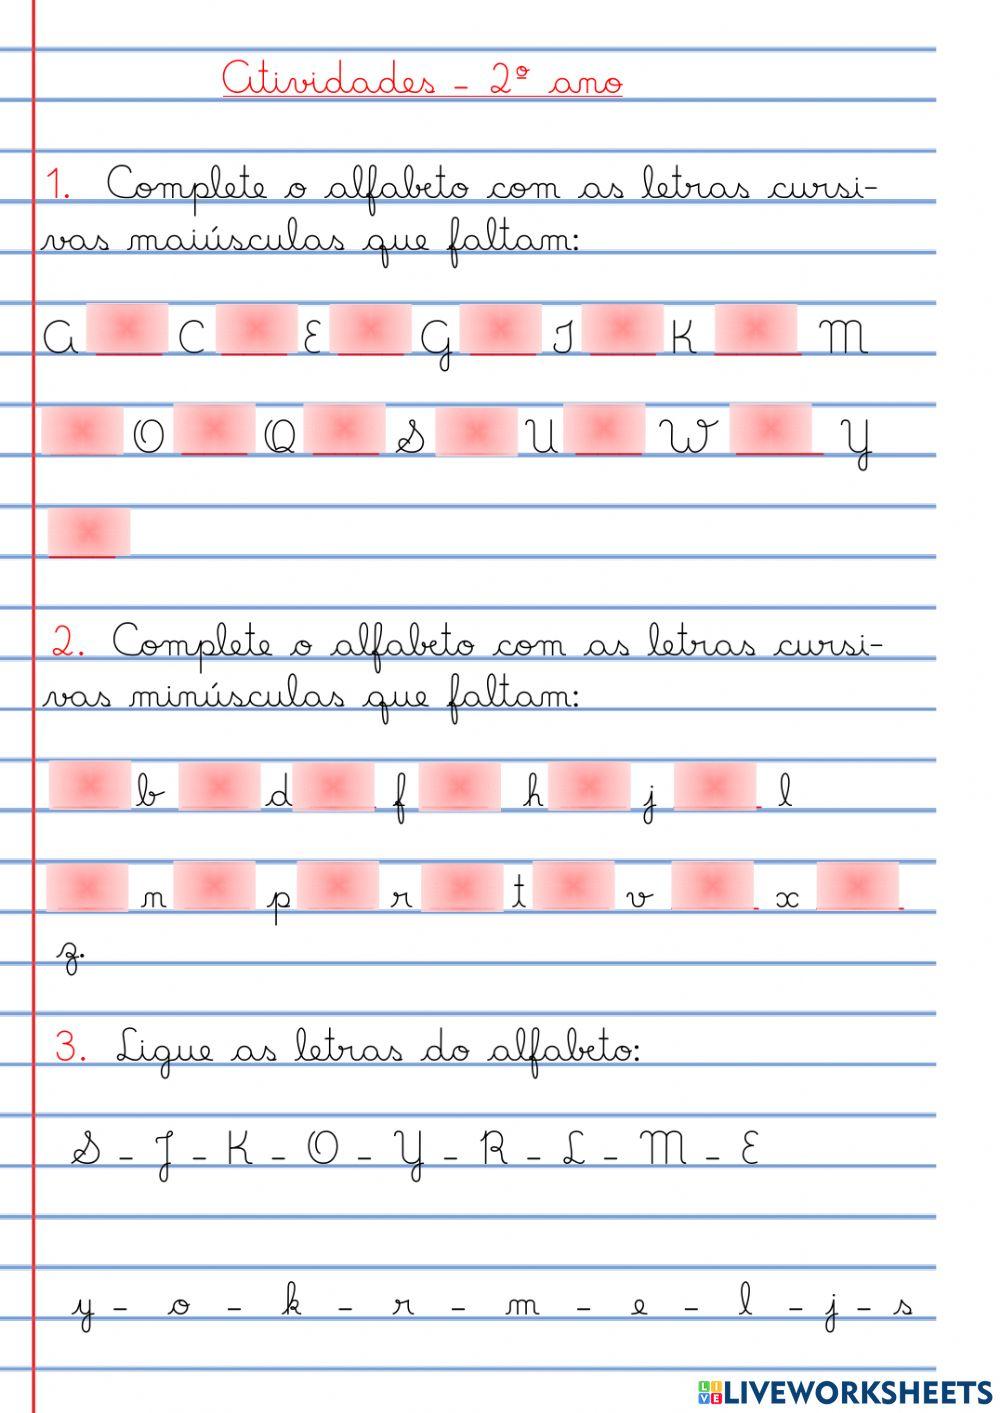 Atividades - 2º ano
1. Complete o alfabeto com as letras cursi-
vas maiúsculas que faltam:
A C E G I K M
O Q S U W Y
2. Complete o alfabeto com as letras cursi-
vas minúsculas que faltam:
b d f h j l
n p r t v x
z.
3. Ligue as letras do alfabeto:
S - J - K - O - Y - R - L - M - E
y - o - k - r - m - e - l - j - s
LIVEWORKSHEETS